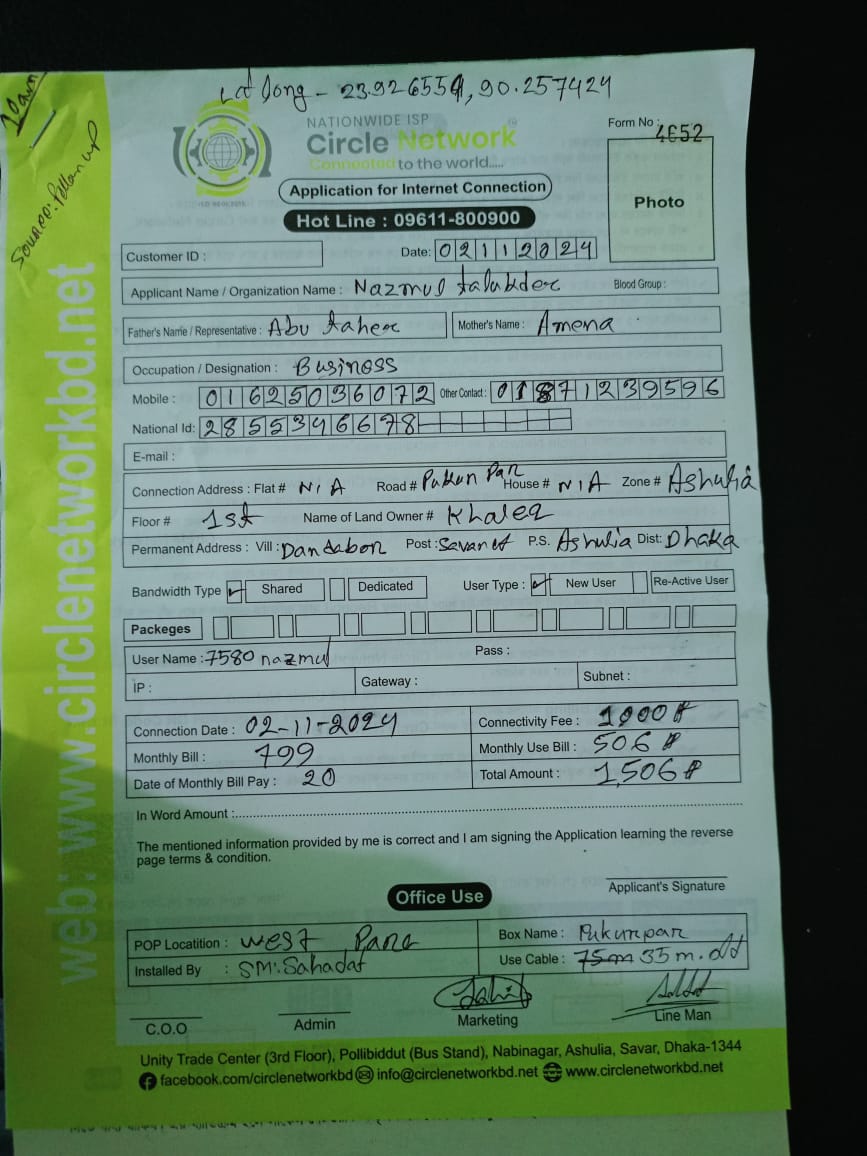 Lat long - 23.926554, 90.257424
NATIONWIDE ISP
Circle Network
Connected to the world.....
Form No : 4652
Application for Internet Connection
Photo
Hot Line : 09611-800900
Source:
Customer ID :
Date: 02112024
Applicant Name / Organization Name : Nazmul talukder Blood Group :
Father's Name / Representative : Abu taher Mother's Name : Amena
Occupation / Designation : Business
Mobile : 01625036072 Other Contact : 01871239596
National Id: 2855346678
E-mail :
Connection Address : Flat # N/A Road # Pukur Par House # N/A Zone # Ashulia
Floor # 1st Name of Land Owner # Khaleq
Permanent Address : Vill : Dandabor Post : Savar P.S. Ashulia Dist: Dhaka
Bandwidth Type Shared Dedicated User Type : New User Re-Active User
Packeges
User Name : 7580 nazmul Pass :
IP : Gateway : Subnet :
Connection Date : 02-11-2024 Connectivity Fee : 1000৳
Monthly Bill : 799 Monthly Use Bill : 506৳
Date of Monthly Bill Pay : 20 Total Amount : 1,506৳
In Word Amount :
The mentioned information provided by me is correct and I am signing the Application learning the reverse
page terms & condition.
Applicant's Signature
Office Use
POP Locatition : west Para Box Name : Pukurpar
Installed By : SM: Sahadat Use Cable : 75m 35m. old
C.O.O Admin Marketing Line Man
Unity Trade Center (3rd Floor), Pollibiddut (Bus Stand), Nabinagar, Ashulia, Savar, Dhaka-1344
facebook.com/circlenetworkbd info@circlenetworkbd.net www.circlenetworkbd.net
web: www.circlenetworkbd.net